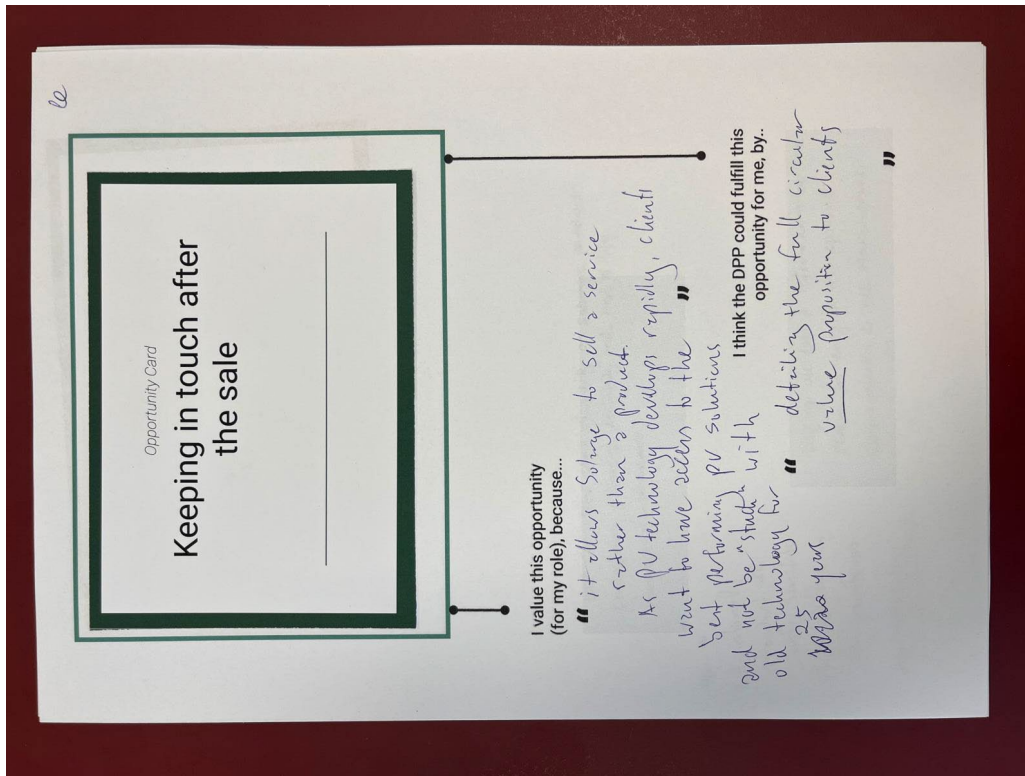 Opportunity Card
Keeping in touch after
the sale
I value this opportunity
(for my role), because...
“ it allows Solarge to sell a service
rather than a product.
As PV technology develops rapidly, clients
want to have access to the ”
best performing PV solutions
and not be "stuck" with
old technology for
25
years
I think the DPP could fulfill this
opportunity for me, by..
“ detailing the full circular
value proposition to clients
”